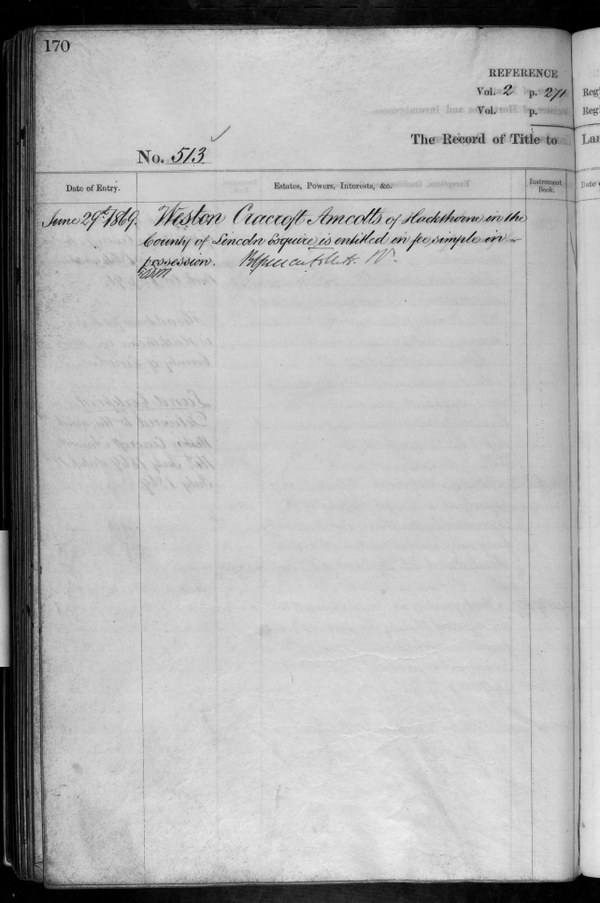 170
REFERENCE
Vol. 2 p. 271
Vol. p.
The Record of Title to
No. 513
Date of Entry.
Estates, Powers, Interests, &c.
Instrument Book.
June 29th 1869. Weston Cracroft Amcotts of Hackthorne in the
County of Lincoln Esquire is entitled in fee simple in
possession.
Reg
Reg
Lan
Date o